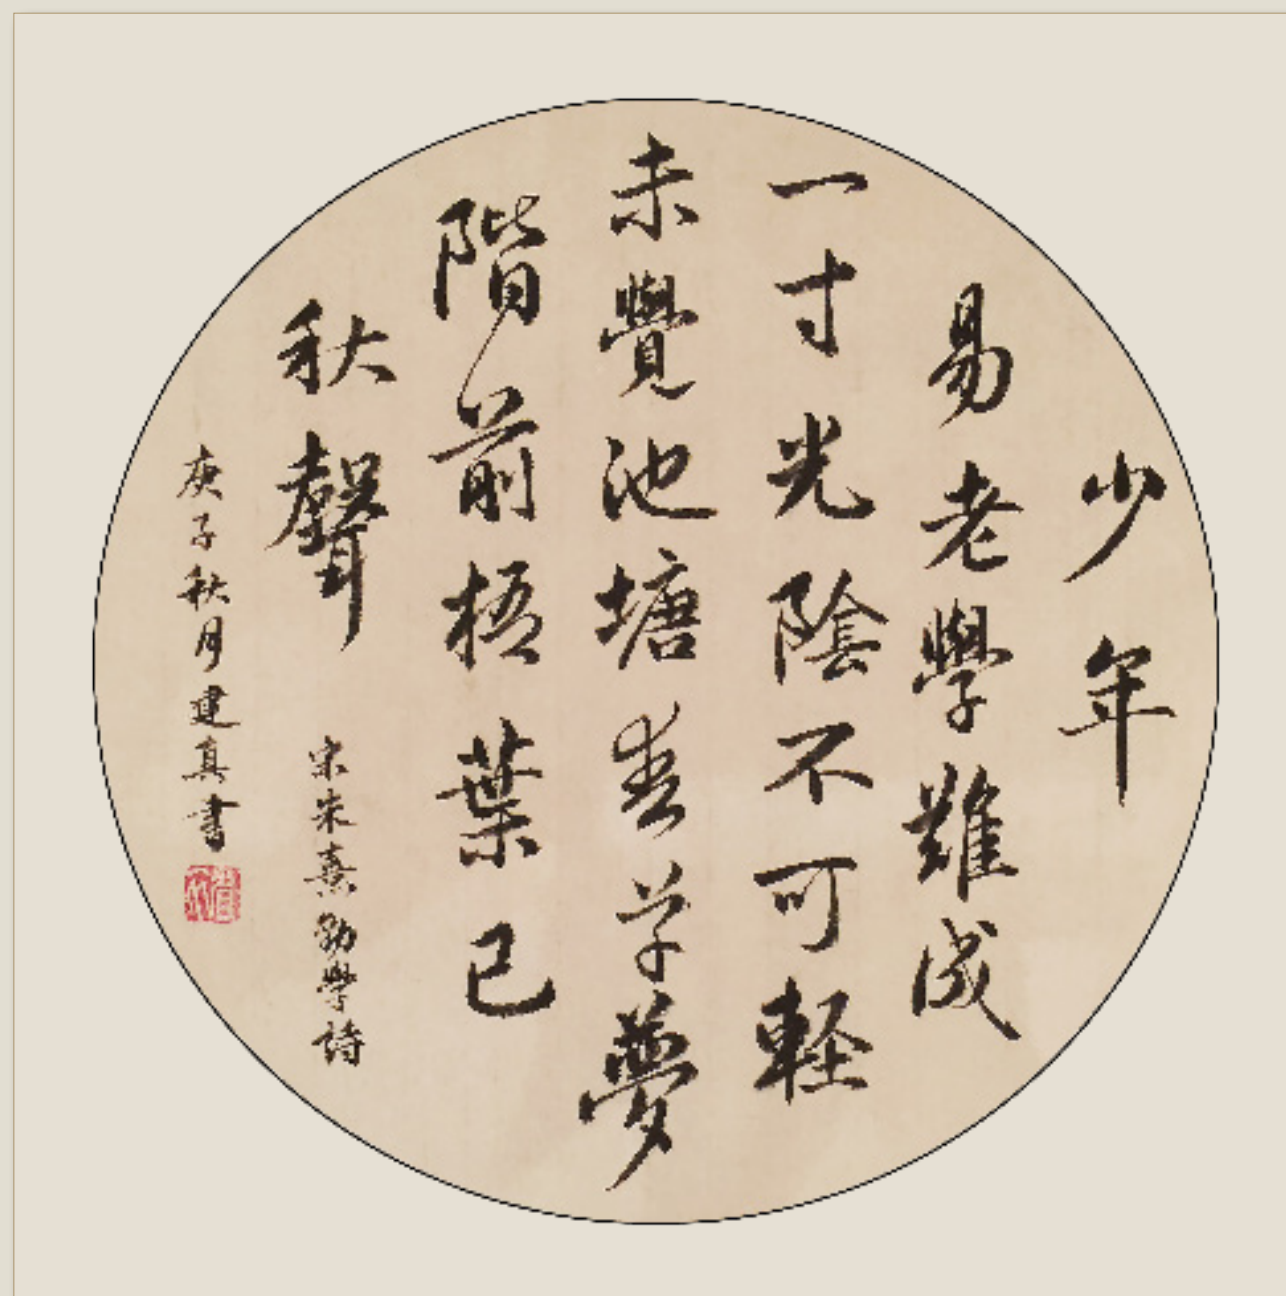 少年
易老學難成
一寸光陰不可軽
未覺池塘春草夢
階前梧葉已
秋聲
宋朱熹勸學詩
庚子秋月建真書